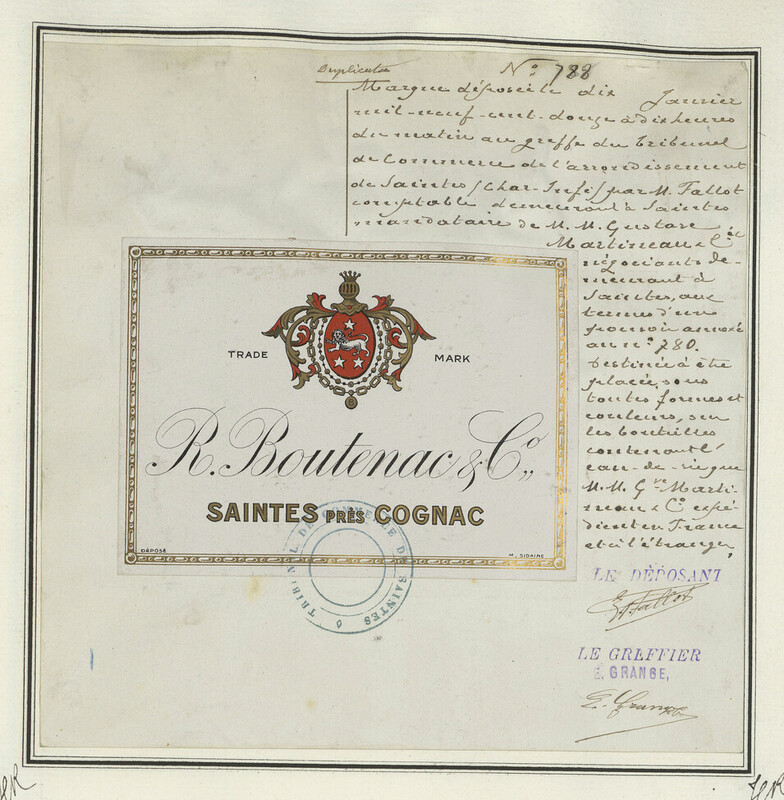 Duplicata
N° 788
Marque déposée le dix Janvier
mil-neuf-cent-douze à dix heures
du matin au greffe du Tribunal
de Commerce de l'arrondissement
de Saintes (Char-Infé) par M. Fallot
comptable demeurant à Saintes
mandataire de M. M. Gustave
Martineau & Cie
négociants de-
meurant à
Saintes, aux
termes d'un
pouvoir annexé
au n° 780.
Destinée à être
placée, sous
toutes formes et
couleurs, sur
les bouteilles
contenant l'
eau-de-vie que
M. M. Gve Marti-
neau & Co expé-
dient en France
et à l'étranger,
TRADE MARK
B
R. Boutenac & Co,,
SAINTES PRÈS COGNAC
DÉPOSÉ
M. SIDAINE
TRIBUNAL DE COMMERCE DE SAINTES
LE DÉPOSANT
E. Fallot
LE GREFFIER
E. GRANGE,
E. Grange